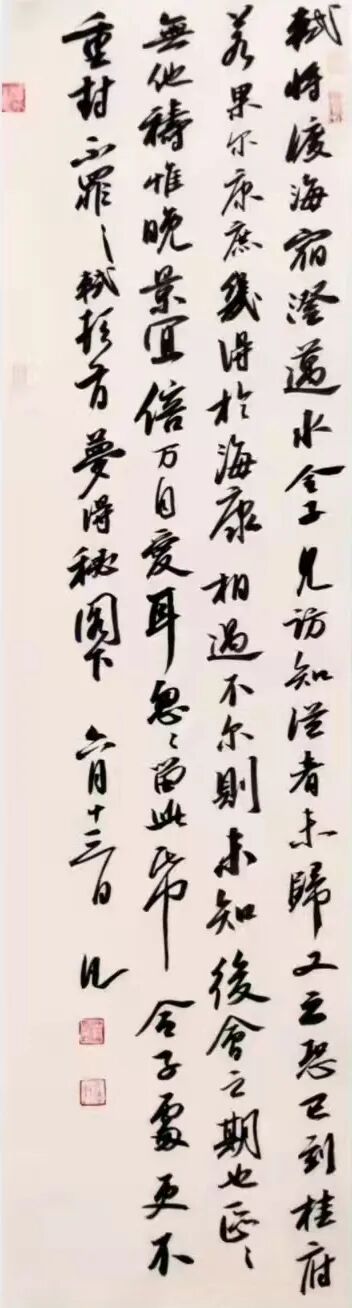 軾將渡海宿澄邁承令子見訪知從者未歸又云恐已到桂府
若果尔康庶幾得於海康相遇不尔則未知後會之期也區〻
無他禱惟晚景宜倍万自愛耳忽〻留此帋令子處更不
重封不罪〻軾頓首夢得秘閣下 六月十三日